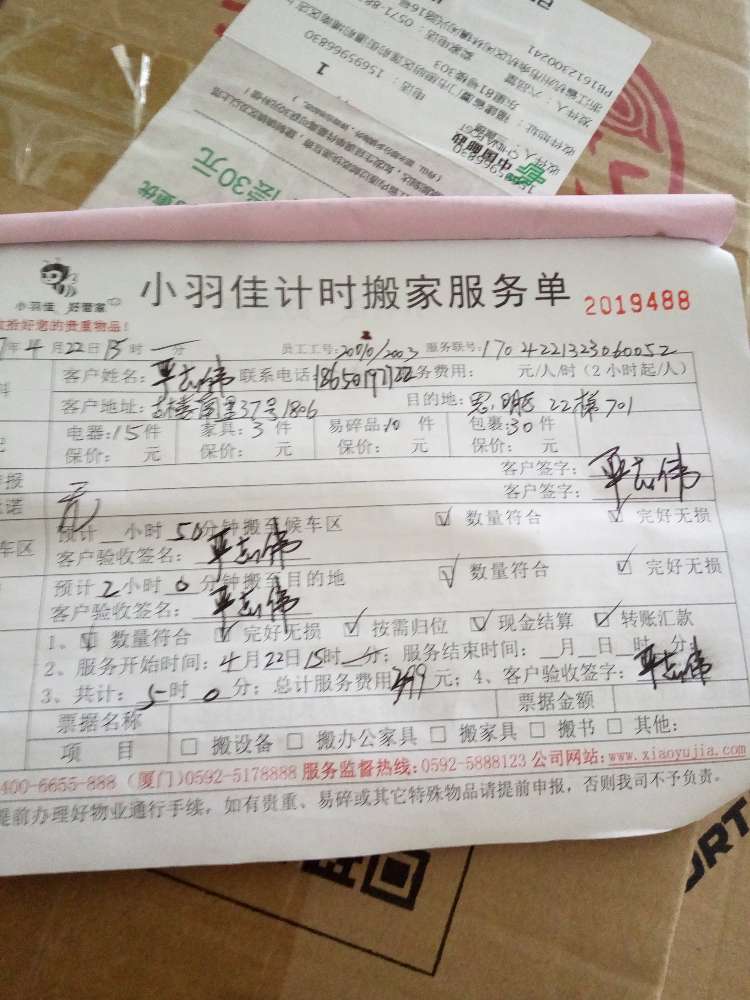 PB1612300241
发件人：六品堂
浙江省杭州市余杭区闲林镇闲兴路16号
卖家电话：0571-88
东星81号楼303
电话：15695966830
1
中国邮政
偿30元
小羽佳 好管家
小羽佳计时搬家服务单 2019488
收拾好您的贵重物品！
年4月22日15时 分 员工工号：2070/2003 服务联号：1704221323060052
客户姓名： 联系电话 务费用： 元/人/时（2小时起/人）
客户地址： 37号1806 目的地：思明 22梯701
电器：15件 家具：3件 易碎品：10件 包裹：30件
保价： 元 保价： 元 保价： 元 保价： 元
客户签字：
报
客户签字：
诺
预计 小时50分钟搬至候车区 数量符合 完好无损
车区
客户验收签名：
预计2小时0分钟搬至目的地 数量符合 完好无损
客户验收签名：
1、 数量符合 完好无损 按需归位 现金结算 转账汇款
2、服务开始时间：4月22日15时 分；服务结束时间： 月 日 时 分；
3、共计：5时0分；总计服务费用 元；4、客户验收签字：
票据名称 票据金额
项 目 搬设备 搬办公家具 搬家具 搬书 其他：
400-6655-888（厦门）0592-5178888 服务监督热线：0592-5888123 公司网站：www.xiaoyujia.com
提前办理好物业通行手续，如有贵重、易碎或其它特殊物品请提前申报，否则我司不予负责。